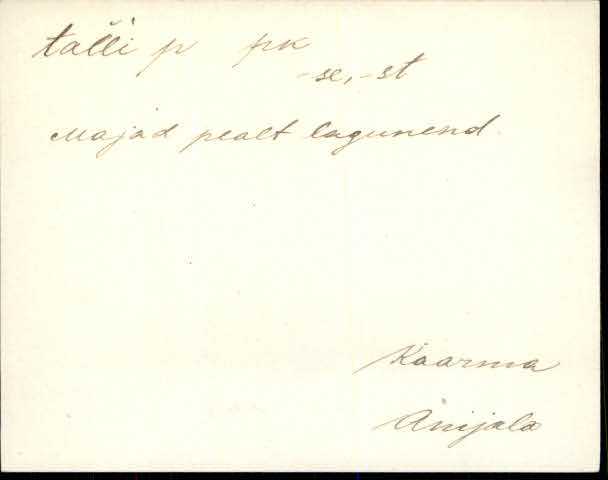 talli p pk
-se, -st
Majad pealt lagunend.
Kaarma
Anijala